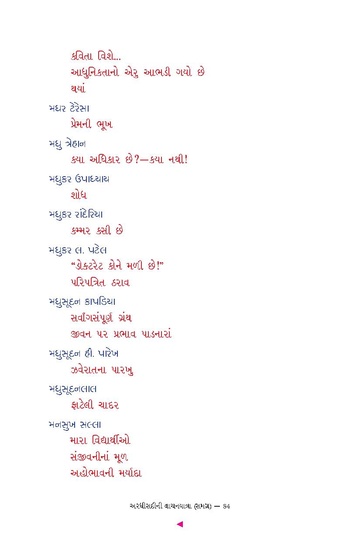 કવિતા વિશે...
આધુનિકતાનો એરુ આભડી ગયો છે
થયાં
મધર ટેરેસા
પ્રેમની ભૂખ
મધુ ત્રેહાન
કયા અધિકાર છે?—કયા નથી!
મધુકર ઉપાધ્યાય
શોધ
મધુકર રાંદેરિયા
કમ્મર કસી છે
મધુકર લ. પટેલ
“ડોકટરેટ કોને મળી છે!”
પરિપત્રિત ઠરાવ
મધુસૂદન કાપડિયા
સર્વાંગસંપૂર્ણ ગ્રંથ
જીવન પર પ્રભાવ પાડનારાં
મધુસૂદન હી. પારેખ
ઝવેરાતના પારખુ
મધુસૂદનલાલ
ફાટેલી ચાદર
મનસુખ સલ્લા
મારા વિદ્યાર્થીઓ
સંજીવનીનાં મૂળ
અહોભાવની મર્યાદા
અરધીસદીની વાચનયાત્રા (સમગ્ર) — 84